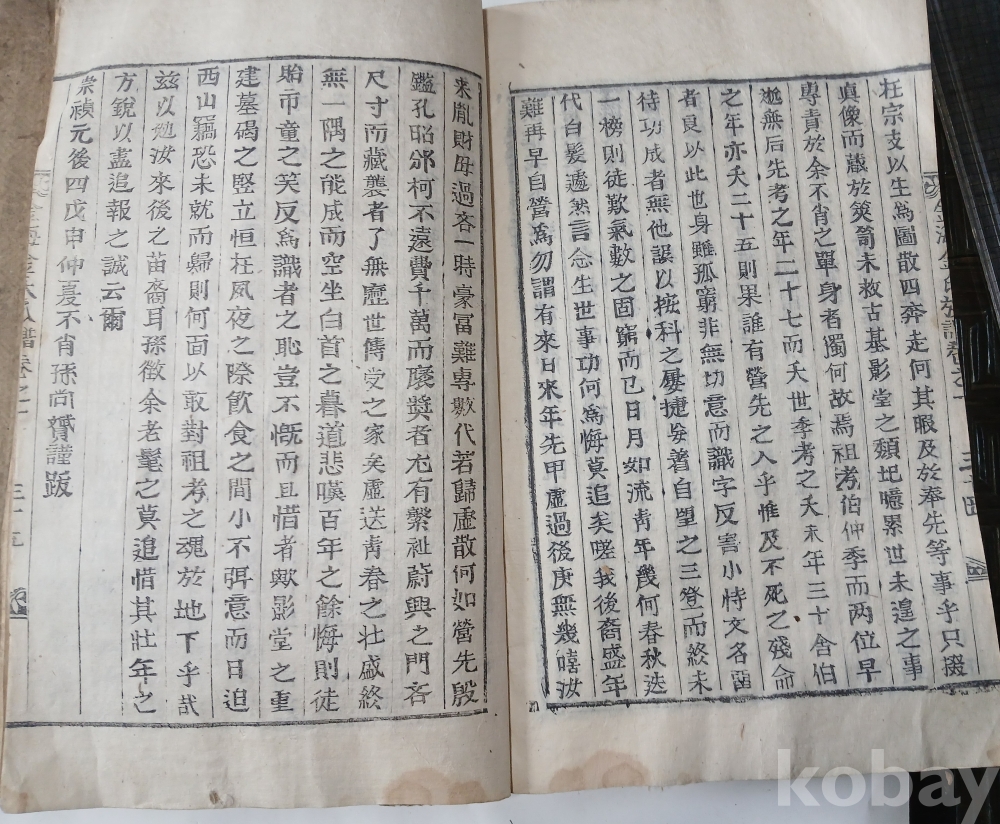 枉宗支以生爲圖散四奔走何其暇及於奉先等事乎只掇
眞像而藏於筴笥未救古基影堂之頹圮噫累世未遑之事
專責於余不肖之單身者獨何故焉祖考伯仲季而兩位早
逝無后先考之年二十七而夭世季考之夭未年三十舍伯
之年亦夭二十五則果誰有營先之入乎惟及不死之殘命
者良以此也身雖孤窮非無切意而識字反害小恃文名
待功成者無他誤以按科之屢捷發著自望之三登而終未
一榜則徒歎氣數之固窮而已日月如流靑年幾何春秋迭
代白髮遽然言念生世事功何爲悔莫追矣嗟我後裔盛年
難再早自營爲勿謂有來日來年先甲虛過後庚無幾嘻汝
來胤財母過吝一時豪富難專數代若歸虛散何如營先殷
鑑孔昭邠柯不遠費千萬而褒奬者尤有繫祉蔚興之門吝
尺寸而藏襲者了無歷世傳受之家矣虛送靑春之壯盛終
無一隅之能成而空坐白首之暮道悲嘆百年之餘悔則徒
貽市童之笑反爲識者之恥豈不慨而且惜者歟影堂之重
建墓碣之竪立恒枉夙夜之際飮食之間小不弭意而日迫
西山竊恐未就而歸則何面以敢對祖考之魂於地下乎哉
玆以勉汝來後之苗裔耳孫徵余老髦之莫追惜其壯年之
方銳以盡追報之誠云爾
崇禎元後四戊申仲夏不肖孫尙贇謹跋
kobay